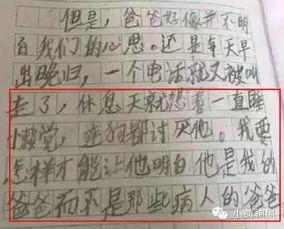 但是，爸爸好像并不明
白我们的心思。还是每天早
出晚归，一个电话就又被叫
走了，休息天就想着一直睡
小被觉，连狗都讨厌他。我要
怎样才能让他明白他是我的
爸爸而不是那些病人的爸爸